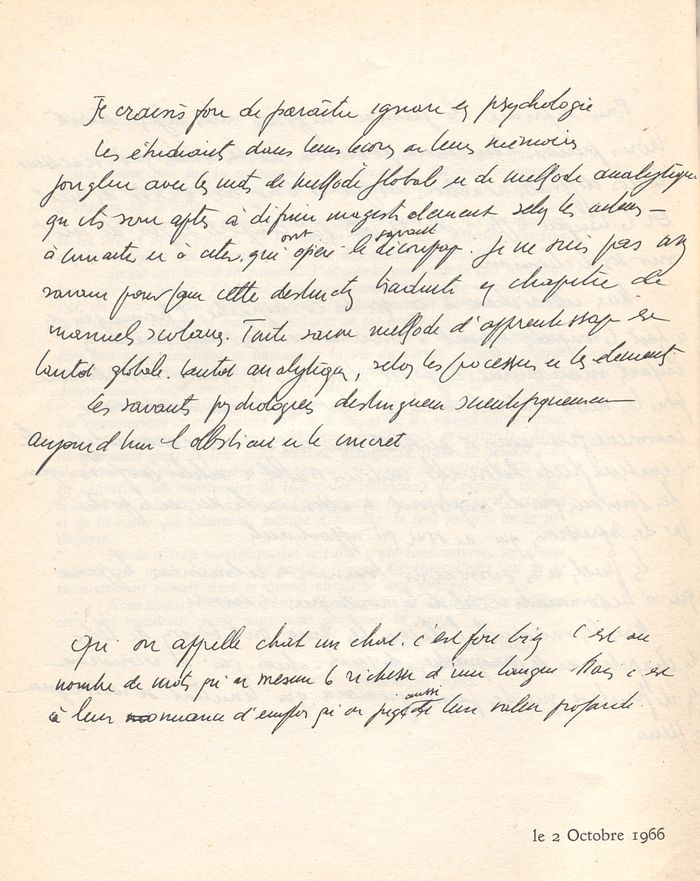 Je crains fort de paraître ignare en psychologie
Les étudiants dans leurs cours ou leurs mémoires
jonglent avec les mots de méthode globale et de méthode analytique
qu'ils sont aptes à définir magistralement selon les auteurs
à et à citer. qui ont opéré le savant découpage. Je ne suis pas un
savant pour que cette traduite en chapitre de
manuels scolaires. Toute saine méthode d'apprentissage est
tantôt globale. tantôt analytique, selon les processus et les éléments.
Les savants psychologues distinguent scientifiquement
aujourd'hui l'abstrait et le concret
Qu'on appelle chat un chat. c'est fort bien c'est au
nombre de mots qu'on mesure la richesse d'une langue Mais c'est
à leur nuance d'emploi qu'on juge aussi de leur valeur profonde.
le 2 Octobre 1966